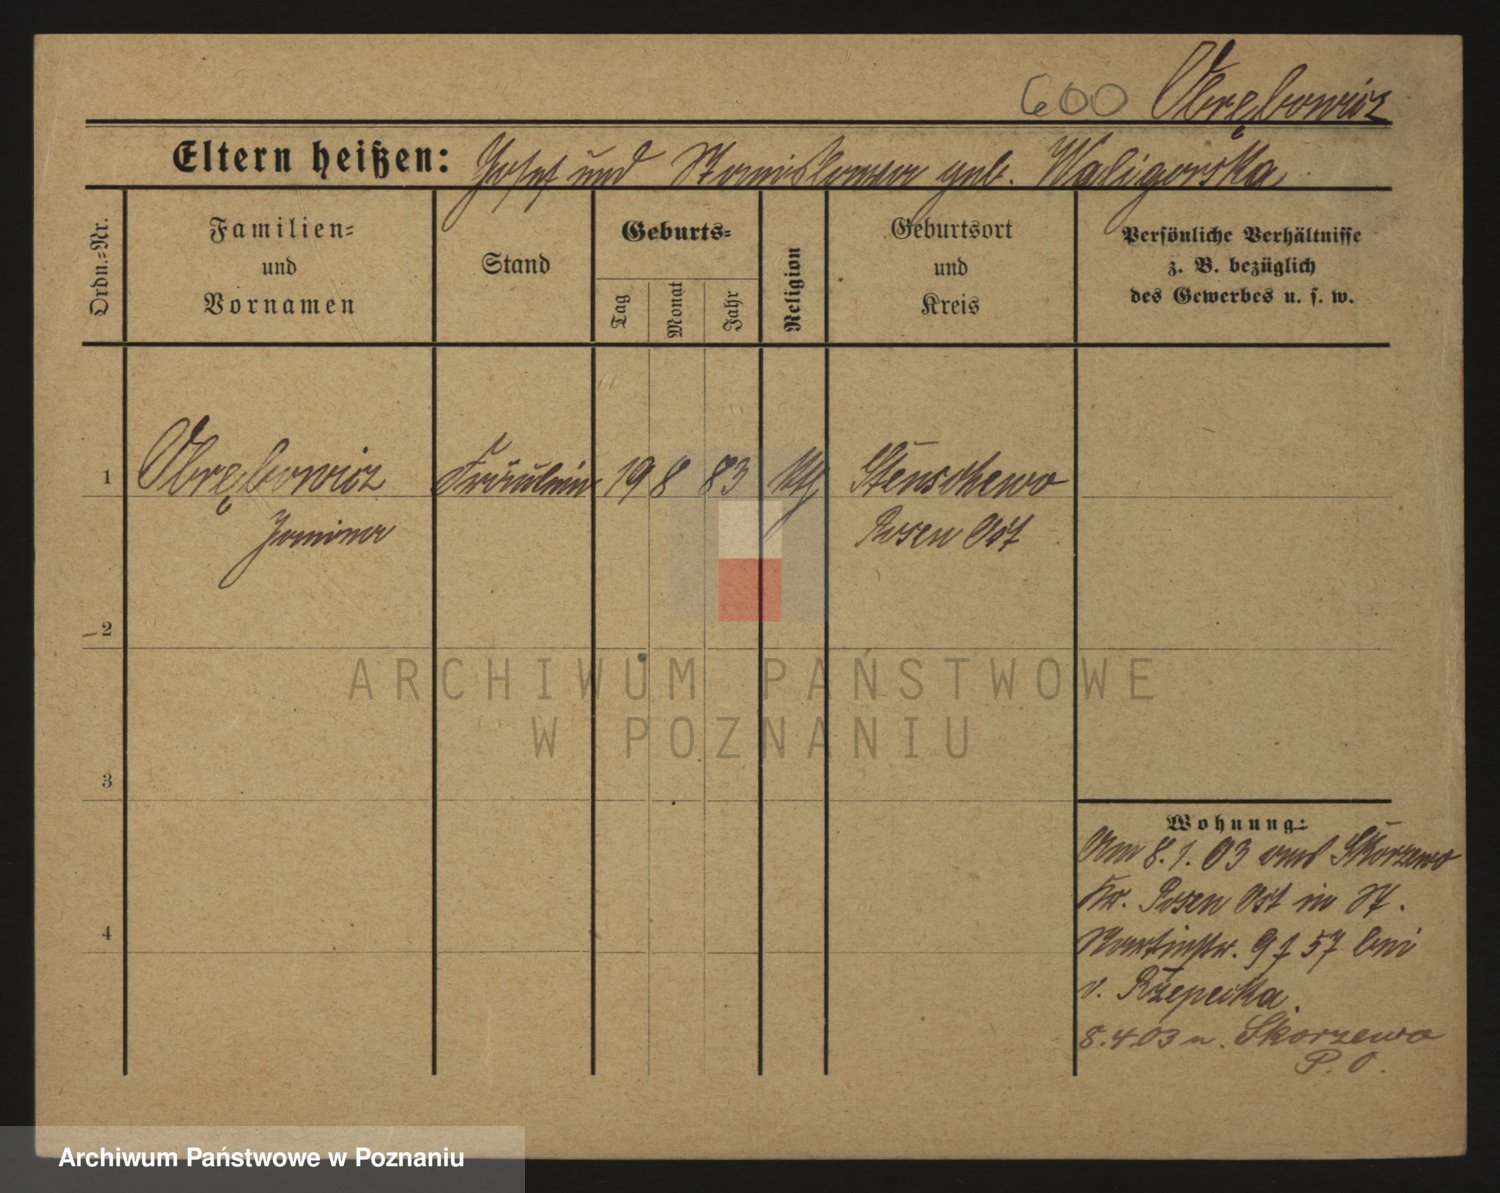 600 Obrębowicz
Eltern heißen: Josef und Stanislawa geb. Waligorska
Ordn.-Nr.
Familien-
und
Vornamen
Stand
Geburts-
Tag
Monat
Jahr
Religion
Geburtsort
und
Kreis
Persönliche Verhältnisse
z. B. bezüglich
des Gewerbes u. s. w.
1 Obrębowicz Fräulein 19 8 83 kth Stenschewo
Janina Posen Ost
2
ARCHIWUM PAŃSTWOWE
W POZNANIU
3
Wohnung:
Am 8.1.03 aus Skorzewo
Kr. Posen Ost in St.
Martinstr. 57 bei
v. Rzepecka.
8.4.03 n. Skorzewo
P. O.
4
Archiwum Państwowe w Poznaniu